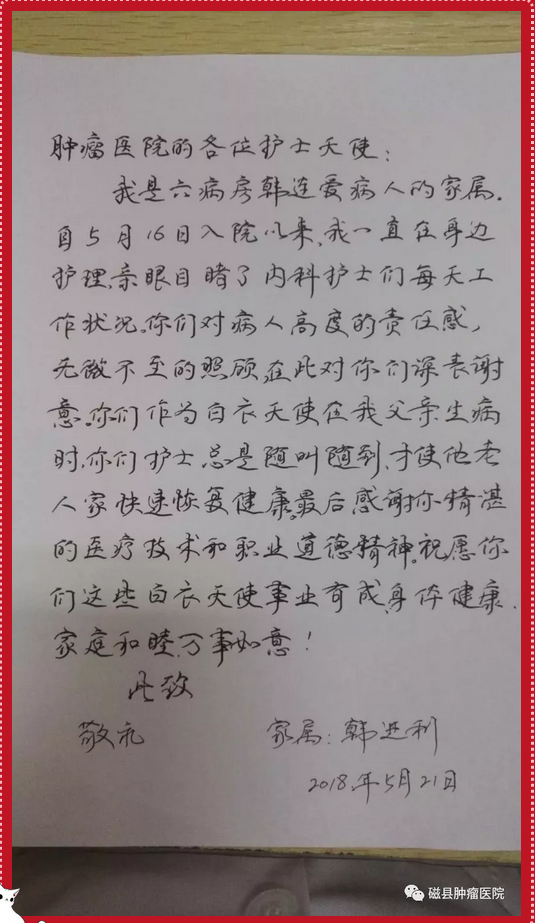 肿瘤医院的各位护士天使:
我是六病房韩连爱病人的家属.
自5月16日入院以来,我一直在身边
护理,亲眼目睹了内科护士们每天工
作状况,你们对病人高度的责任感,
无微不至的照顾,在此对你们深表谢
意.你们作为白衣天使在我父亲生病
时,你们护士总是随叫随到,才使他老
人家快速恢复健康。最后感谢你精湛
的医疗技术和职业道德精神。祝愿你
们这些白衣天使事业有成,身体健康.
家庭和睦,万事如意!
此致
敬礼
家属:韩进利
2018.年5月21日
磁县肿瘤医院